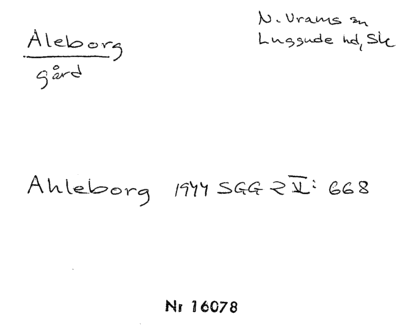 Aleborg
gård
N. Vrams sn
Luggude hd, Sk
Ahleborg 1944 SGG 2 V: 668
Nr 16078